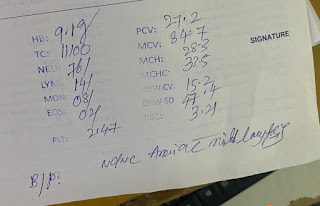 HB: 9.1g/ PCV: 27.2
TC: 11100 MCV: 84.7
NEU: 76/ MCH: 28.3
LYM: 14/ MCHC: 33.5
MON: 08/ RDW-CV: 15.2
EOS: 02/ RDW-SD: 47.4
RBC: 3.21
PLT: 2.47
SIGNATURE
B/P: